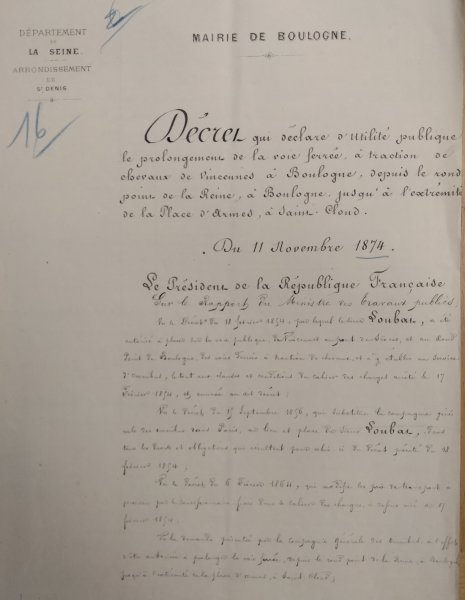 DÉPARTEMENT
DE
LA SEINE.
ARRONDISSEMENT
DE
St DENIS.
16
MAIRIE DE BOULOGNE.
Décret qui déclare d'Utilité publique
le prolongement de la voie ferrée, à traction de
chevaux de Vincennes à Boulogne, depuis le rond
point de la Reine, à Boulogne, jusqu'à l'extrémité
de la Place d'Armes, à Saint-Cloud.
Du 11 Novembre 1874.
Le Président de la République Française
Sur le Rapport du Ministre des travaux publics,
Vu le Décret du 18 février 1854, par lequel le sieur Loubat, a été
autorisé à placer sur la voie publique, de Vincennes au pont de Sèvres, et au Rond
Point de Boulogne, des voies ferrées à traction de chevaux, et à y établir un service
d'omnibus, le tout aux clauses et conditions du cahier des charges arrêté le 17
Février 1854, et annexé au dit décret;
Vu le Décret du 15 Septembre 1856, qui substitue la compagnie géné
rale des omnibus de Paris, au lieu et place du Sieur Loubat, dans
tous les droits et obligations qui résultent pour celui-ci du Décret précité du 18
février 1854;
Vu le Décret du 6 Février 1864, qui modifie les prix de transport à
percevoir par le concessionnaire fixés dans le cahier des charges, du 17
février 1854;
Vu la demande présentée par la compagnie Générale des Omnibus, à l'effet
d'être autorisée à prolonger la voie ferrée, depuis le rond point de la Reine, à Boulogne
jusqu'à l'extrémité de la place d'Armes, à Saint-Cloud,